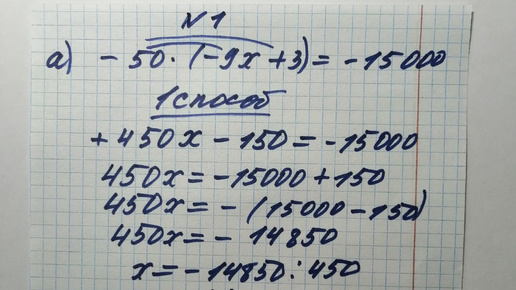 №1
а) - 50 · (-9x + 3) = -15000
1 способ
+ 450x - 150 = -15000
450x = -15000 + 150
450x = - (15000 - 150)
450x = - 14850
x = - 14850 : 450